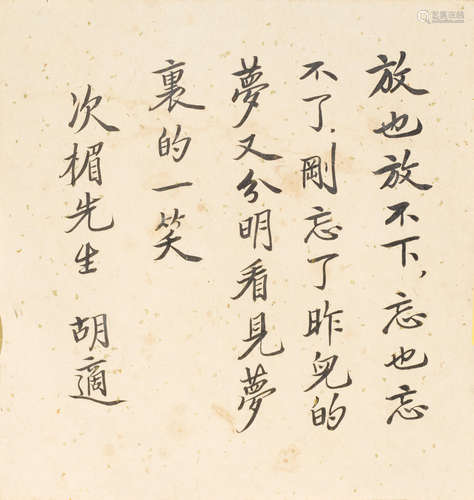 放也放不下，忘也忘
不了，剛忘了昨兒的
夢又分明看見夢
裏的一笑
次楣先生 胡適